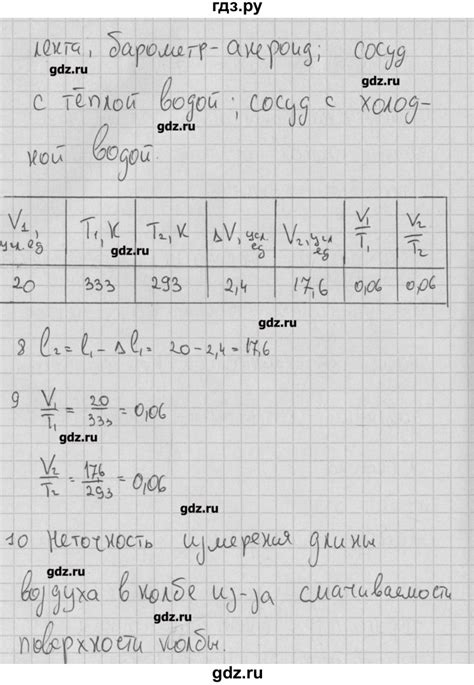 гдз.ру
лента, барометр-анероид; сосуд
gdz.ru
gdz.ru
с тёплой водой; сосуд с холод-
gdz.ru
ной водой.
V₁, усл.ед T₁, К T₂, К ΔV, усл ед V₂, усл ед V₁/T₁ V₂/T₂
20 333 293 2,4 17,6 0,06 0,06
gdz.ru
8 l₂ = l₁ - Δl₁ = 20 - 2,4 = 17,6
9 V₁/T₁ = 20/333 = 0,06
gdz.ru
V₂/T₂ = 17,6/293 = 0,06
gdz.ru
gdz.ru
10 Неточность измерения длины
gdz.ru
воздуха в колбе из-за смачиваемости
gdz.ru
поверхности колбы.
gdz.ru
gdz.ru